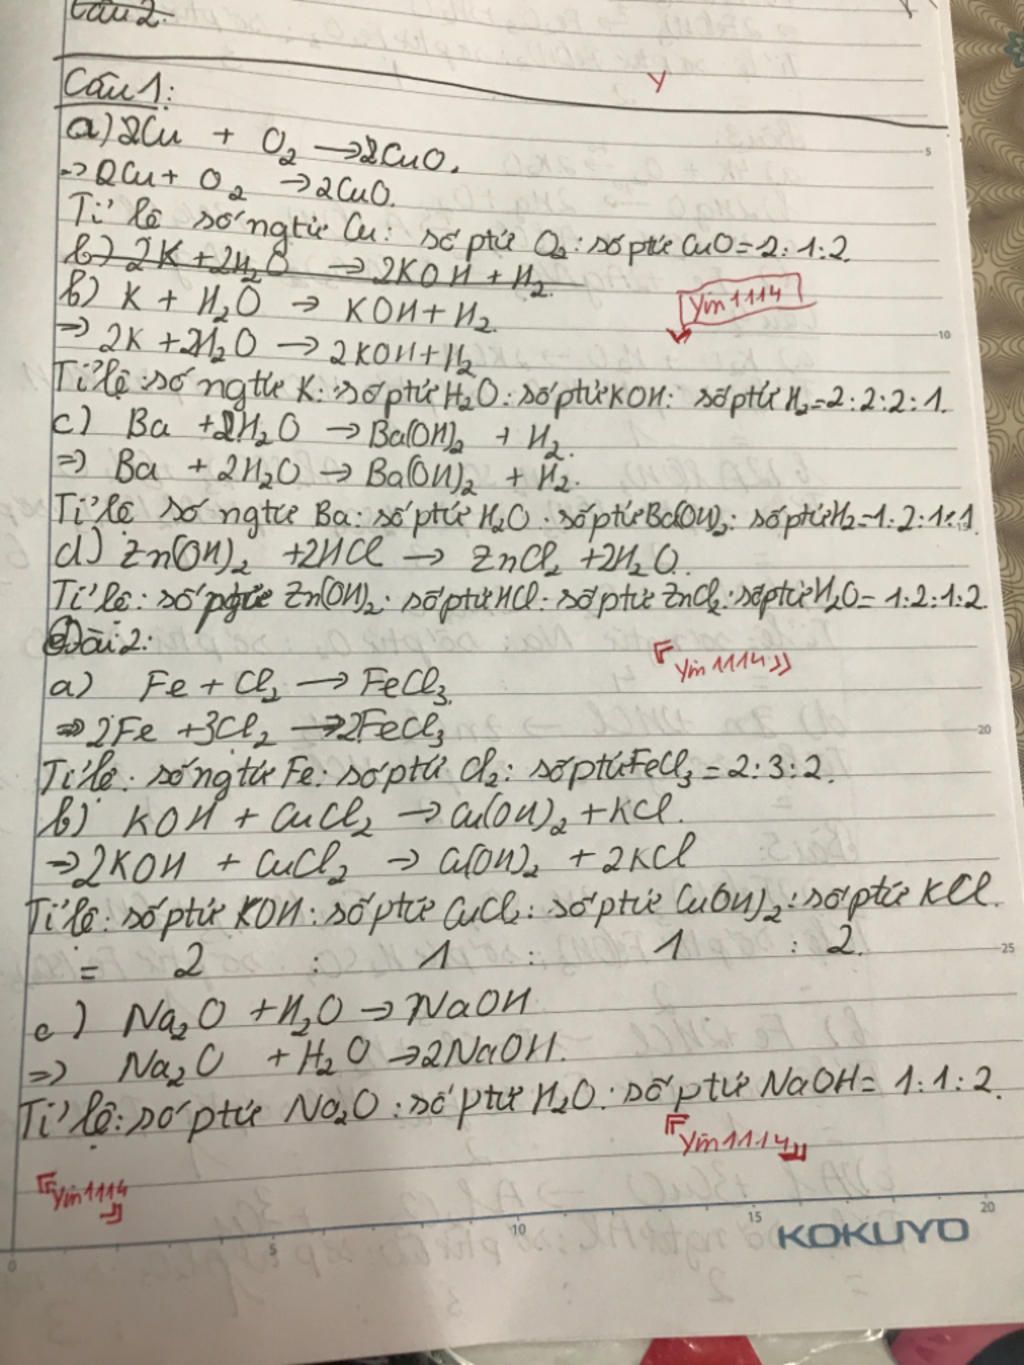 Câu 2.
Câu 1:
a) 2Cu + O₂ → 2CuO.
→ 2Cu + O₂ → 2CuO.
Tỉ lệ số ngtử Cu: số ptử O₂ : số ptử CuO = 2:1:2.
b) 2K + 2H₂O → 2KOH + H₂.
b) K + H₂O → KOH + H₂.
Yin1114
⇒ 2K + 2H₂O → 2KOH + H₂
Tỉ lệ : số ngtử K: số ptử H₂O : số ptử KOH: số ptử H₂ = 2:2:2:1.
c) Ba + 2H₂O → Ba(OH)₂ + H₂.
⇒ Ba + 2H₂O → Ba(OH)₂ + H₂.
Tỉ lệ số ngtử Ba: số ptử H₂O : số ptử Ba(OH)₂: số ptử H₂ = 1:2:1:1
d) Zn(OH)₂ + 2HCl → ZnCl₂ + 2H₂O.
Tỉ lệ: số ptử Zn(OH)₂ : số ptử HCl : số ptử ZnCl₂ : số ptử H₂O = 1:2:1:2.
Bài 2:
Yin1114
a) Fe + Cl₂ → FeCl₃
⇒ 2Fe + 3Cl₂ → 2FeCl₃
Tỉ lệ: số ngtử Fe: số ptử Cl₂: số ptử FeCl₃ = 2:3:2.
b) KOH + CuCl₂ → Cu(OH)₂ + KCl.
→ 2KOH + CuCl₂ → Cu(OH)₂ + 2KCl
Tỉ lệ: số ptử KOH: số ptử CuCl₂: số ptử Cu(OH)₂: số ptử KCl.
= 2 : 1 : 1 : 2.
c) Na₂O + H₂O → NaOH
⇒ Na₂O + H₂O → 2NaOH.
Tỉ lệ: số ptử Na₂O : số ptử H₂O : số ptử NaOH = 1:1:2.
Yin1114
Yin1114
KOKUYO